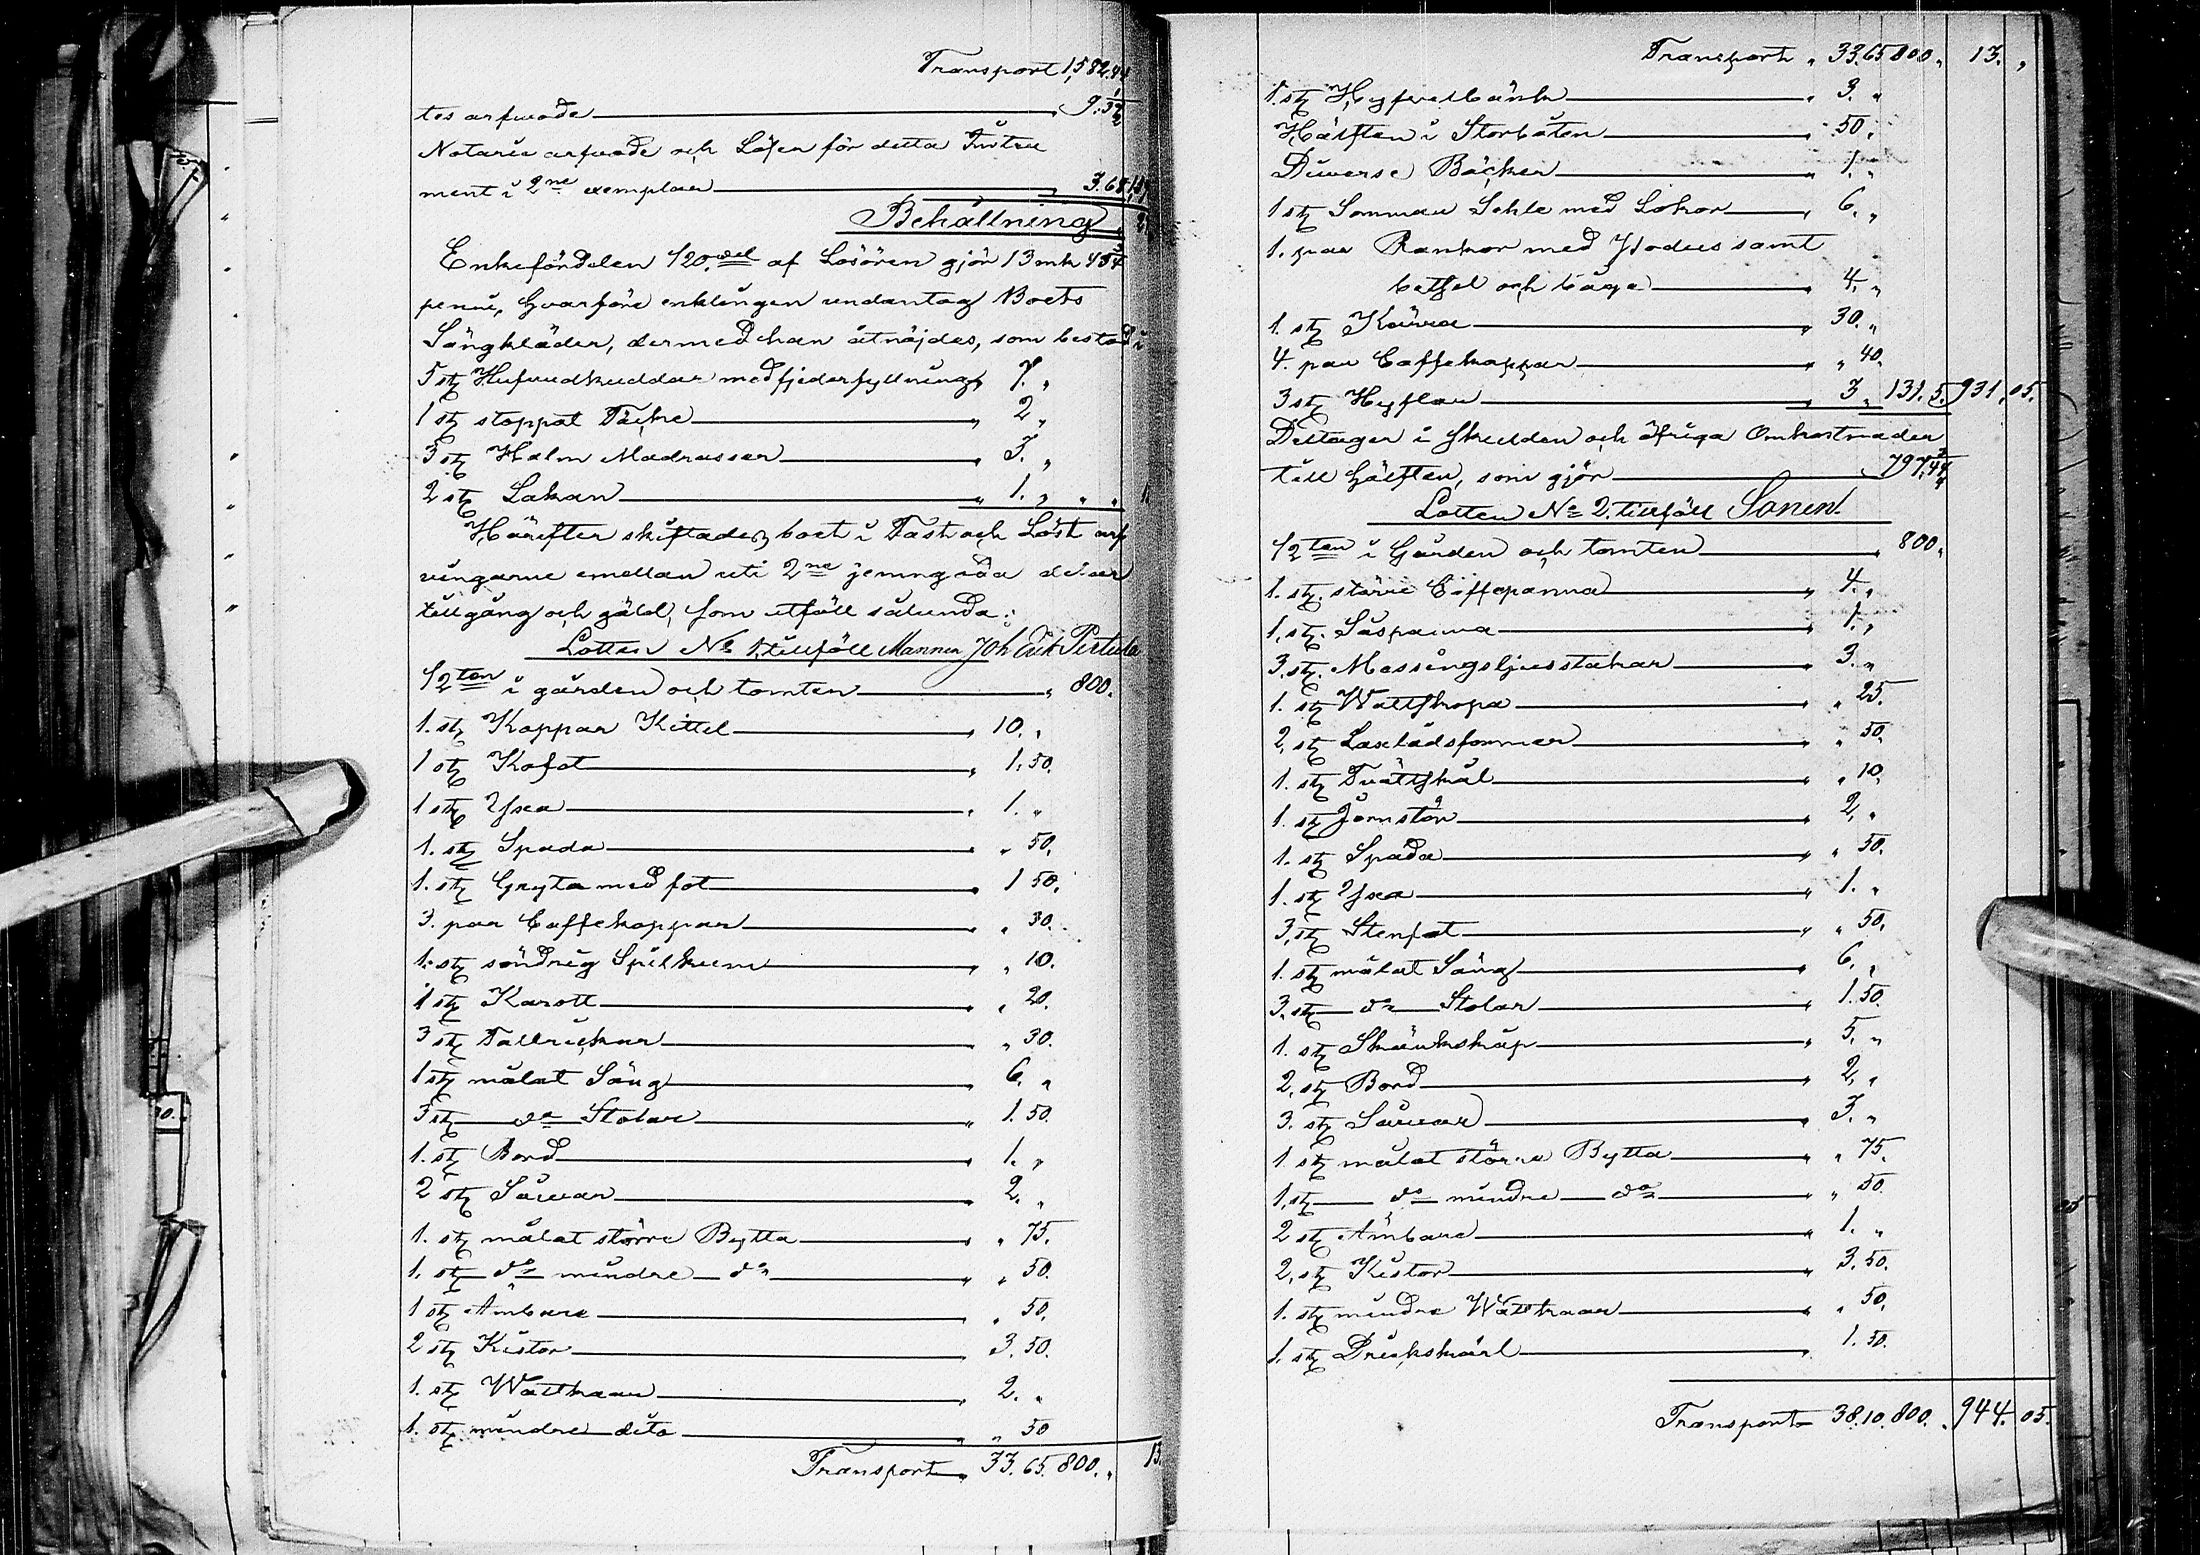 Transport 1,582.44
tes arfwode 9.
Notarie arfwode och Lösen för detta Instru
ment i 2ne exemplar 3.68
Behållning
Enkefördelen 1/20.del af Lösören gjör 13 mk 45
penni, hvarföre enklingen undantog Boets
Sängkläder, dermed han åtnöjdes, som bestod i
5 st Hufvudkuddar med fjederfyllning 7. "
1 st stoppat Täcke " 2 "
3 st Halm Madrasser 3. "
2 st Lakan " 1. " " "
Härefter skiftades boet i Fast och Löst arf
vingarne emellan uti 2ne jemngoda delar
tillgång och gäld, som utföll sålunda:
Lotten No 1. tillföll Mannen Joh Erik Pertula
1/2 ten i gården och tomten " 800.
1. st Koppar Kittel " 10. "
1 st Kofot " 1.50.
1 st Yxa " 1. "
1. st Spada " " 50.
1. st Gryta med fot " 1 50.
3. par Caffekoppar " " 30.
1. st söndrig Spilkum " " 10.
1 st Karott " " 20.
3 st Tallrickar " 30.
1 st målat Säng " 6. "
3 st do Stolar " 1.50.
1. st Bord " 1. "
2 st Såuar " 2. "
1. st målat större Bytta " " 75.
1. st do mindre do " " 50.
1 st Ämbare " 50.
2 st Kistor 3.50.
1. st Wattkaar " 2. "
1. st mindre dito " " 50
Transport " 33.65. 800. " 13.
Transport " 33.65 800 " 13. "
1. st Hyfvelbänk " 3. "
Hälften i Storbåten " 50. "
Diverse Böcker " 1. "
1 st Sommar Sehle med Lokor " 6. "
1. par Rankor med
betsel och båge " 4. "
1. st Kärra " 30. "
4. par Caffekoppar " " 40.
3 st Hyflar " 3 " 131.5. 931.05.
Deltager i skulden och öfriga Omkostnader
till hälften, som gjör 797.44
Lotten No 2. tillföll Sonen
1/2 ten i Gården och tomten " 800.
1. st. större Caffepanna " 4. "
1. st. Såspanna " 1. "
3. st. Messingsljusstakar " 3. "
1. st Wattskopa " " 25.
2. st Laxladsformar " " 50.
1. st Tvättskål " " 10.
1. st Jernstör " 2. "
1. st Spada " " 50.
1. st Yxa " 1. "
3. st Stenfat " " 50.
1. st målat Säng " 6. "
3. st do Stolar " 1.50.
1. st Skänkskåp " 5. "
2. st Bord " 2. "
3. st Såuar " 3. "
1. st målat större Bytta " " 75.
1. st do mindre do " " 50
2 st Ämbare " 1. "
2. st Kistor " 3.50.
1. st mindre Wattkaar " " 50.
1. st Dricskärl " 1.50.
Transport 38.10. 800. " 944.05.